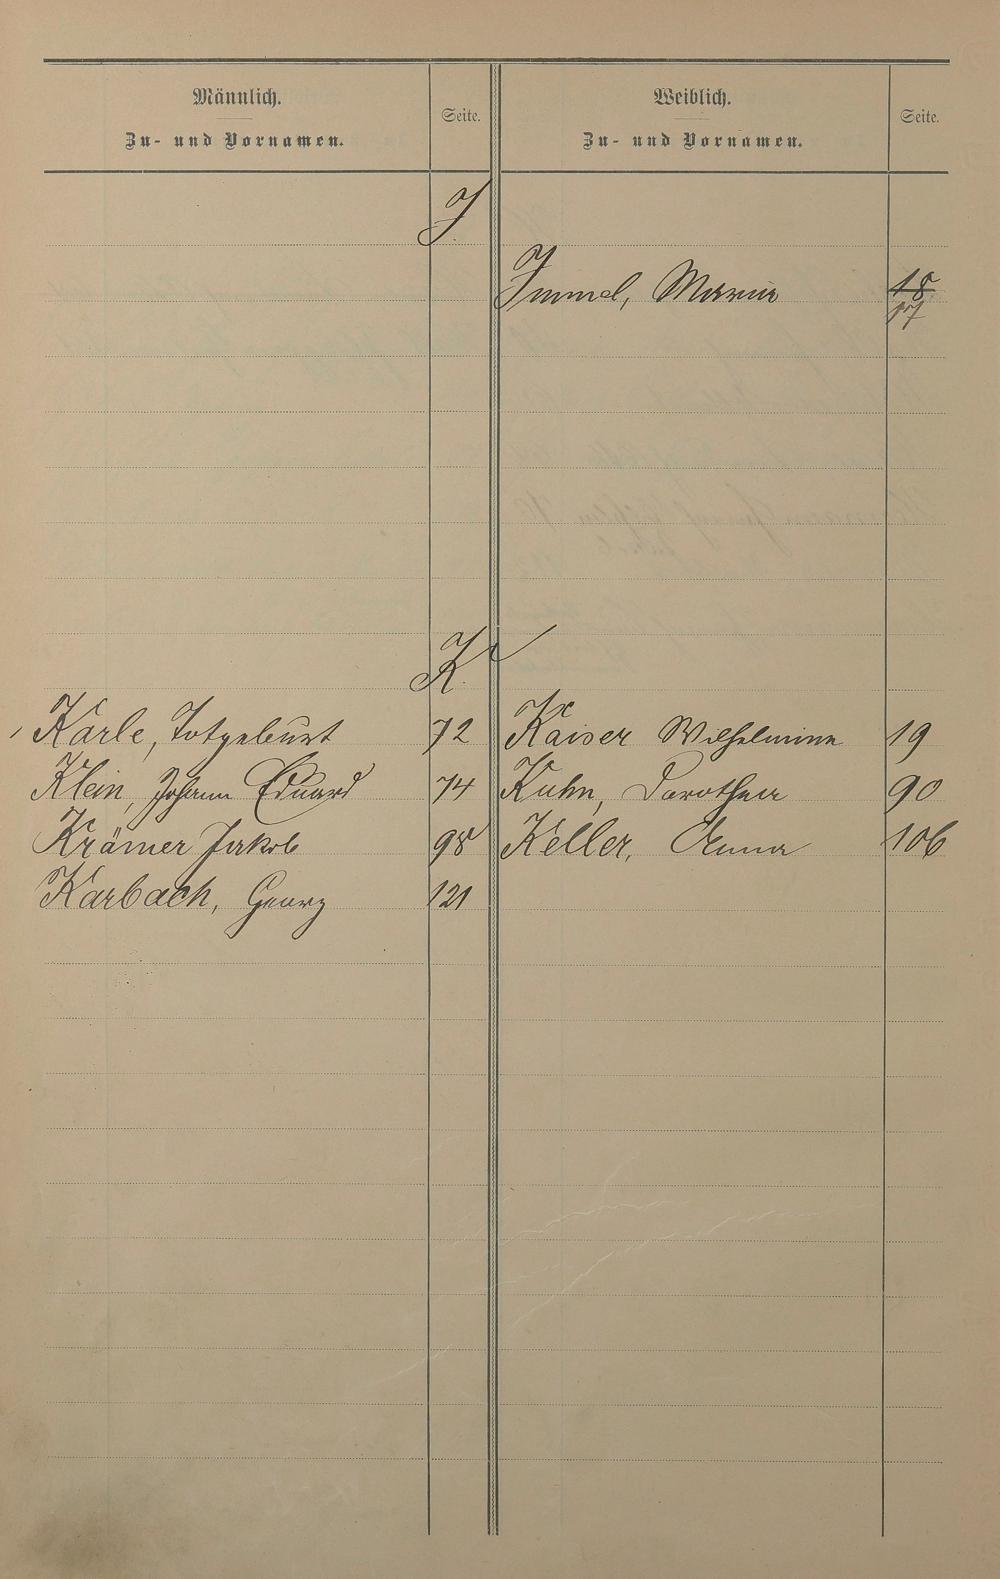 Männlich.
Zu- und Vornamen.
Seite.
Weiblich.
Zu- und Vornamen.
Seite.
J
Immel, Maria 18
17
K
Karle, Totgeburt 72 Kaiser Wilhelmine 19
Klein, Johann Eduard 74 Kuhn, Dorothea 90
Krämer Jakob 98 Keller, Anna 106
Karbach, Georg 121